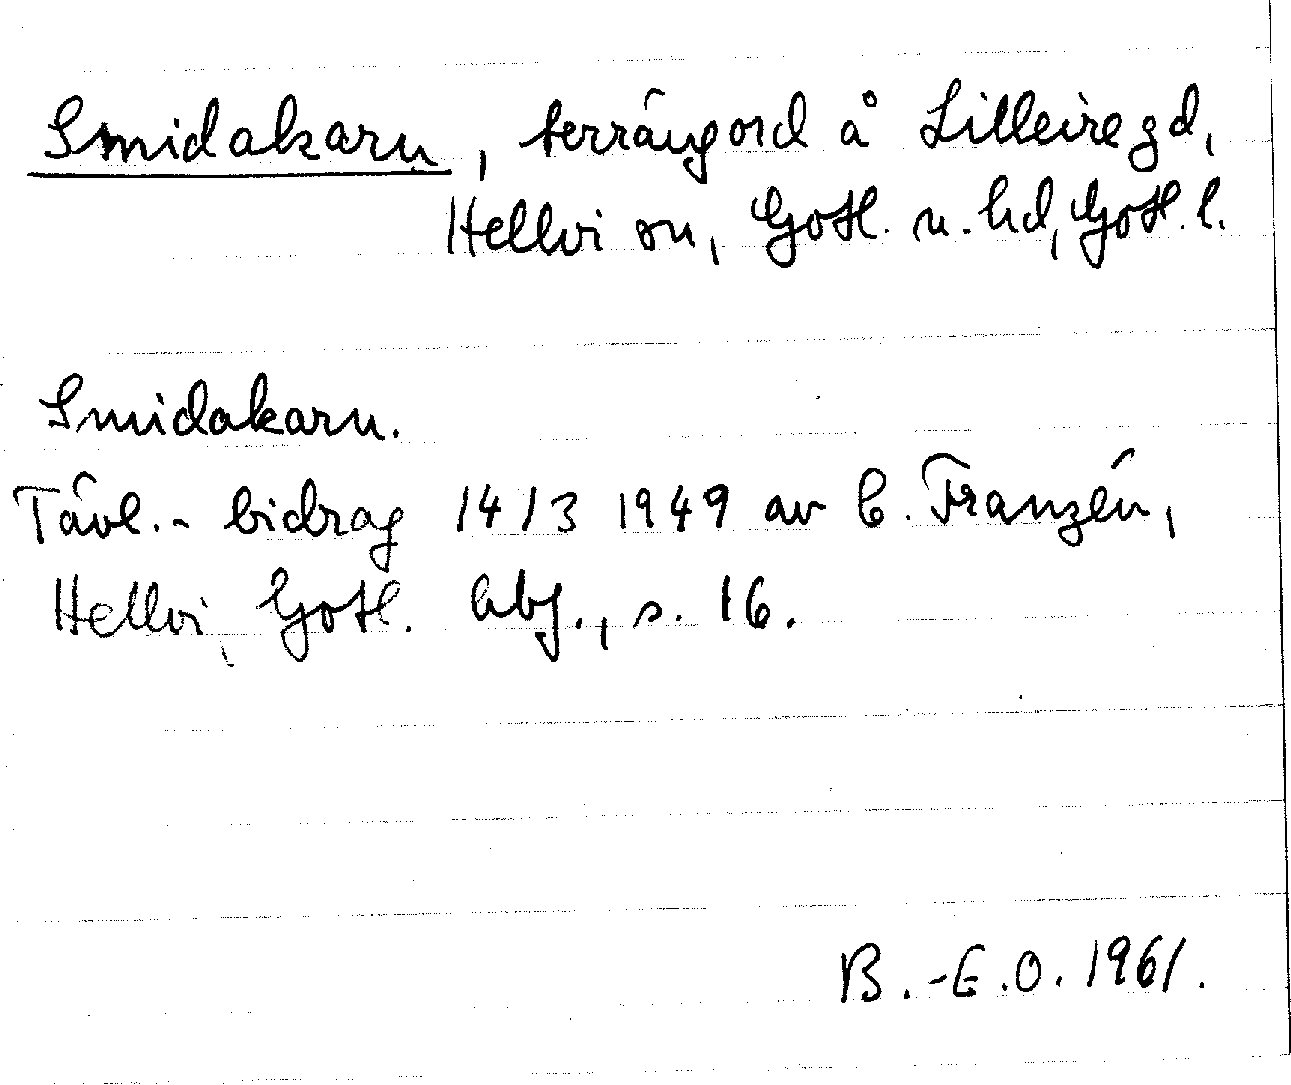 Smidakaru, terrängord å Lilleire gd,
Hellvi sn, Gotl. n. hd, Gotl. l.
Smidakaru.
Tävl.-bidrag 14/3 1949 av C. Franzén,
Hellvi, Gotl. hbf., s. 16.
B.-E.O. 1961.